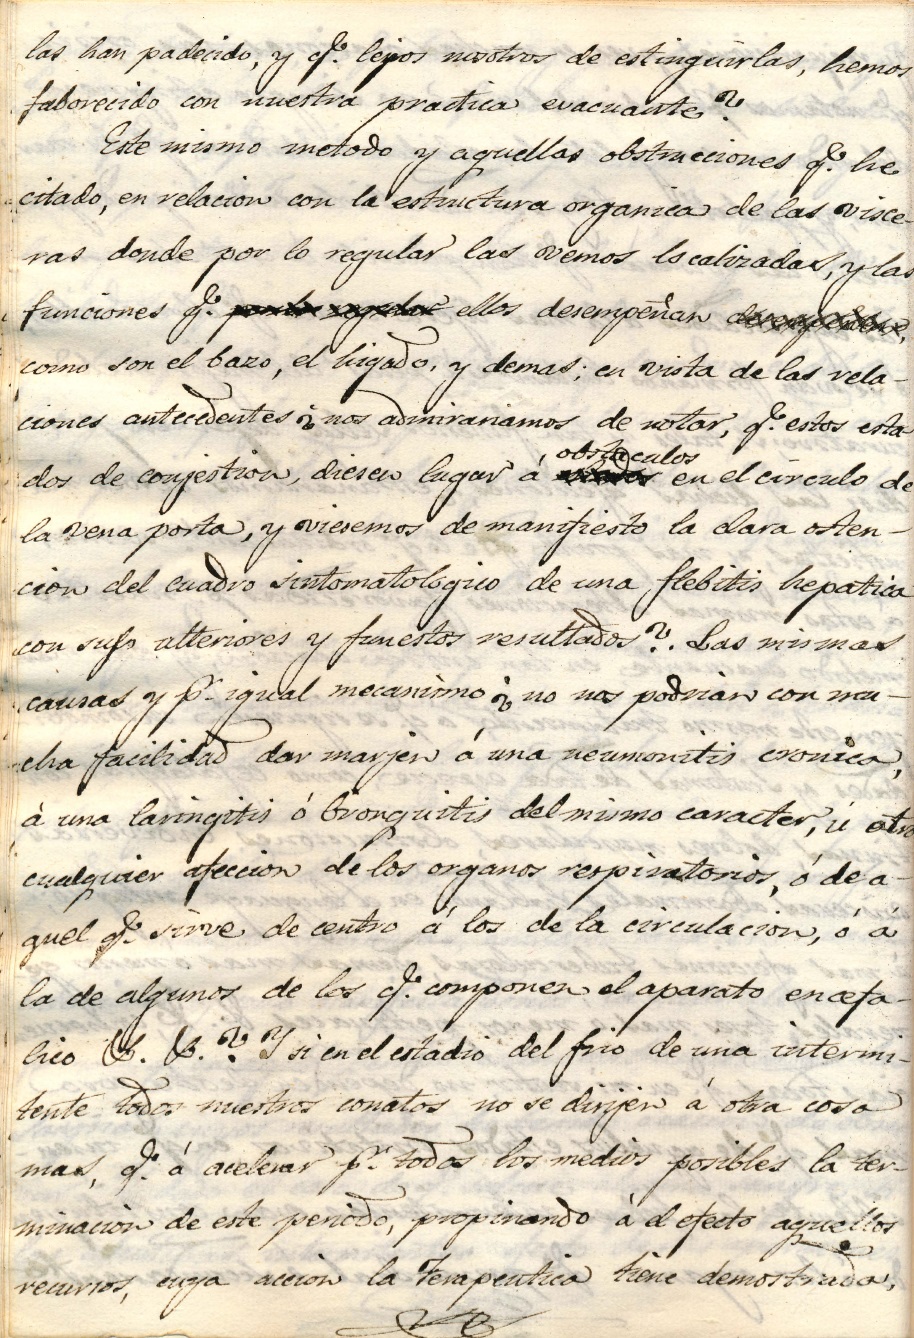 las han padecido, y qe. lejos nosotros de estinguirlas, hemos
faborecido con nuestra practica evacuante?.
Este mismo metodo y aquellas obstrucciones qe. he
citado, en relacion con la estructura organica de las visce-
ras donde por lo regular las vemos localizadas, y las
funciones qe. por lo regular ellos desempeñan desempeñan,
como son el bazo, el higado, y demas; en vista de las rela-
ciones antecedentes ¿nos admirariamos de notar, qe. estos esta
dos de conjestion, diesen lugar á obstaculos en el circulo de
la vena porta, y viesemos de manifiesto la clara osten-
cion del cuadro sintomatologico de una flebitis hepatica
con sus ulteriores y funestos resultados?. Las mismas
causas y pr. igual mecanismo ¿no nos podrian con mu-
cha facilidad dar marjen á una neumonitis cronica,
á una laringitis ó bronquitis del mismo caracter, ú otra
cualquier afeccion de los organos respiratorios, ó de a-
quel qe. sirve de centro á los de la circulacion, ó á
la de algunos de los qe. componen el aparato encefa-
lico &. &.? Y si en el estadio del frio de una intermi-
tente todos nuestros conatos no se dirijen á otra cosa
mas, qe. á acelerar pr. todos los medios posibles la ter-
minacion de este periodo, propinando á el efecto aquellos
recursos, cuya accion la terapeutica tiene demostrada,